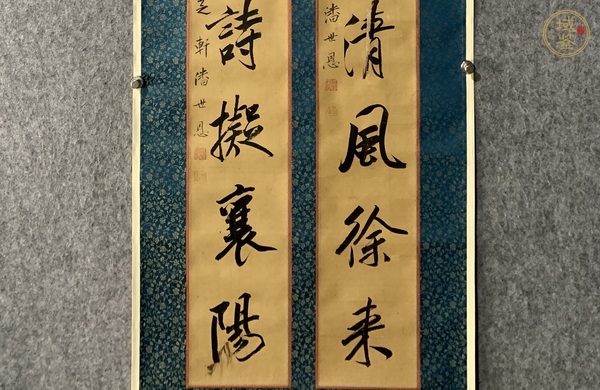 清風徐来
潘世恩
詩擬襄陽
芝軒潘世恩
域鉴